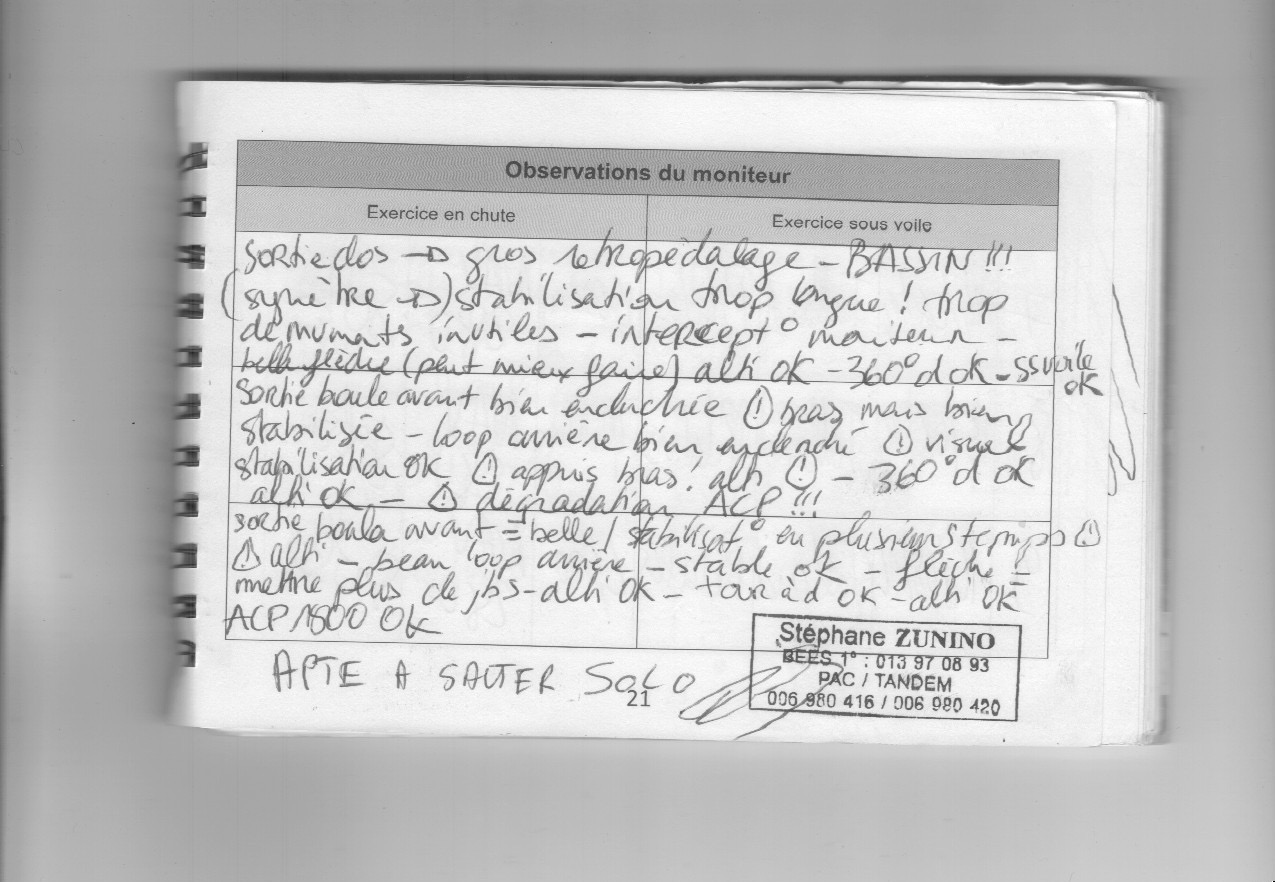 Observations du moniteur
Exercice en chute
Exercice sous voile
sortie dos → gros retropédalage - BASSIN !!!
(symètre →) stabilisation trop longue ! trop
de muvmts inutiles - intercept° moniteur -
belle flèche (peut mieux faire) alti OK - 360° d OK - ss voile
OK
Sortie boule avant bien enclenchée ⚠ bras mais bien
stabilisée - loop arrière bien enclenché ⚠ visuel
stabilisation OK ⚠ appuis bras ! alti ⚠ - 360° d OK
alti OK - ⚠ dégradation ACP !!!
sortie boule avant = belle / stabilisat° en plusieurs temps ⚠
⚠ alti - beau loop arrière - stable ok - flèche =
mettre plus de jbs - alti OK - tour à d OK - alti OK
ACP 1800 OK
APTE A SAUTER SOLO
Stéphane ZUNINO
BEES 1° : 013 97 08 93
PAC / TANDEM
006 980 416 / 006 980 420
21